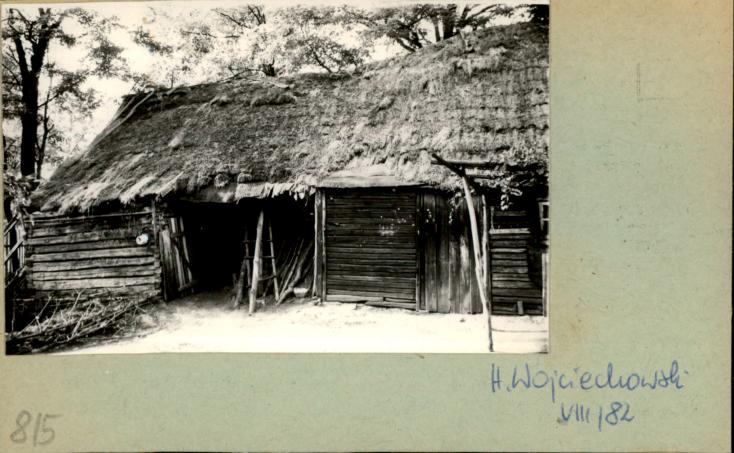 H. Wojciechowski
VIII/82
815